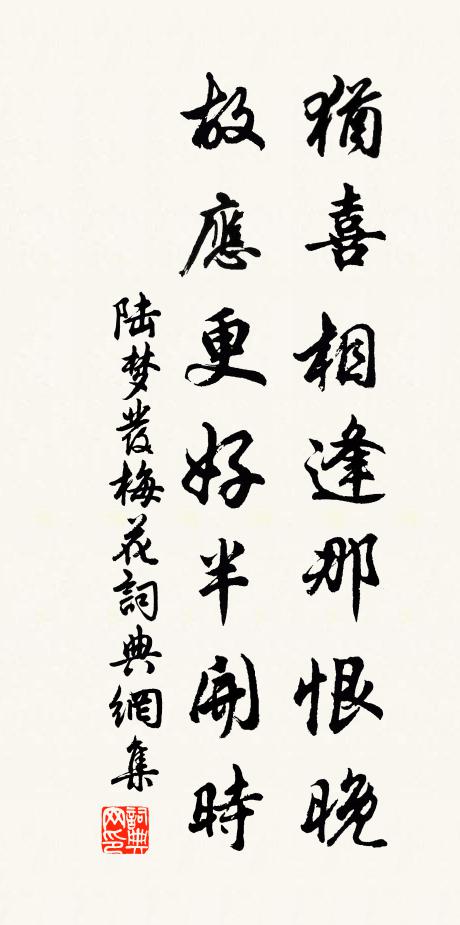 猶喜相逢那恨晚
故應更好半開時
陆梦發梅花詞典網集
詞典网印